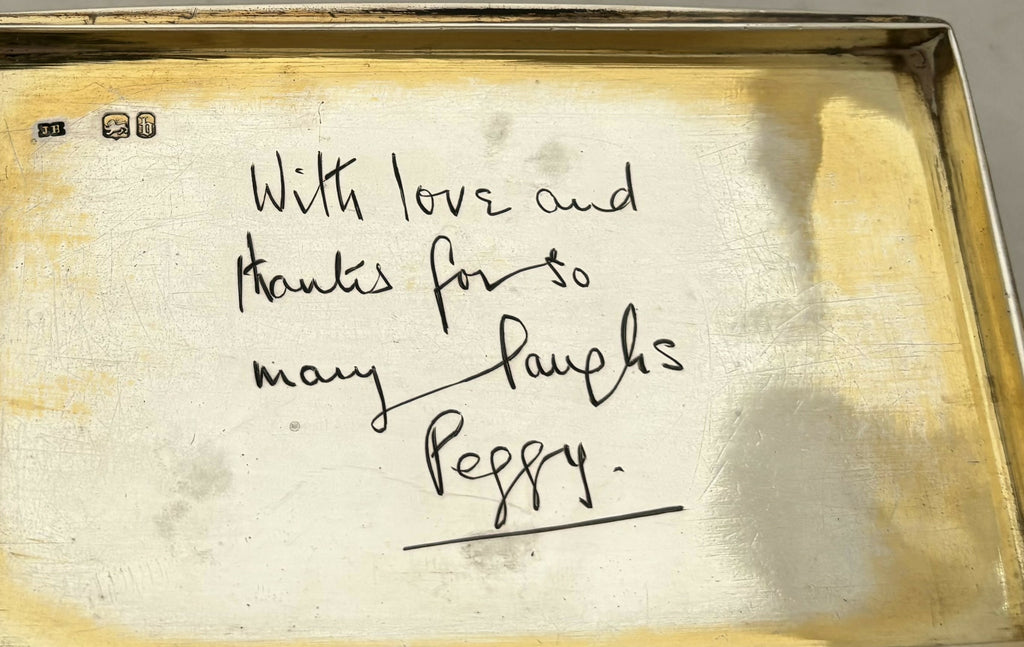 JB
b
With love and
thanks for so
many laughs
Peggy.